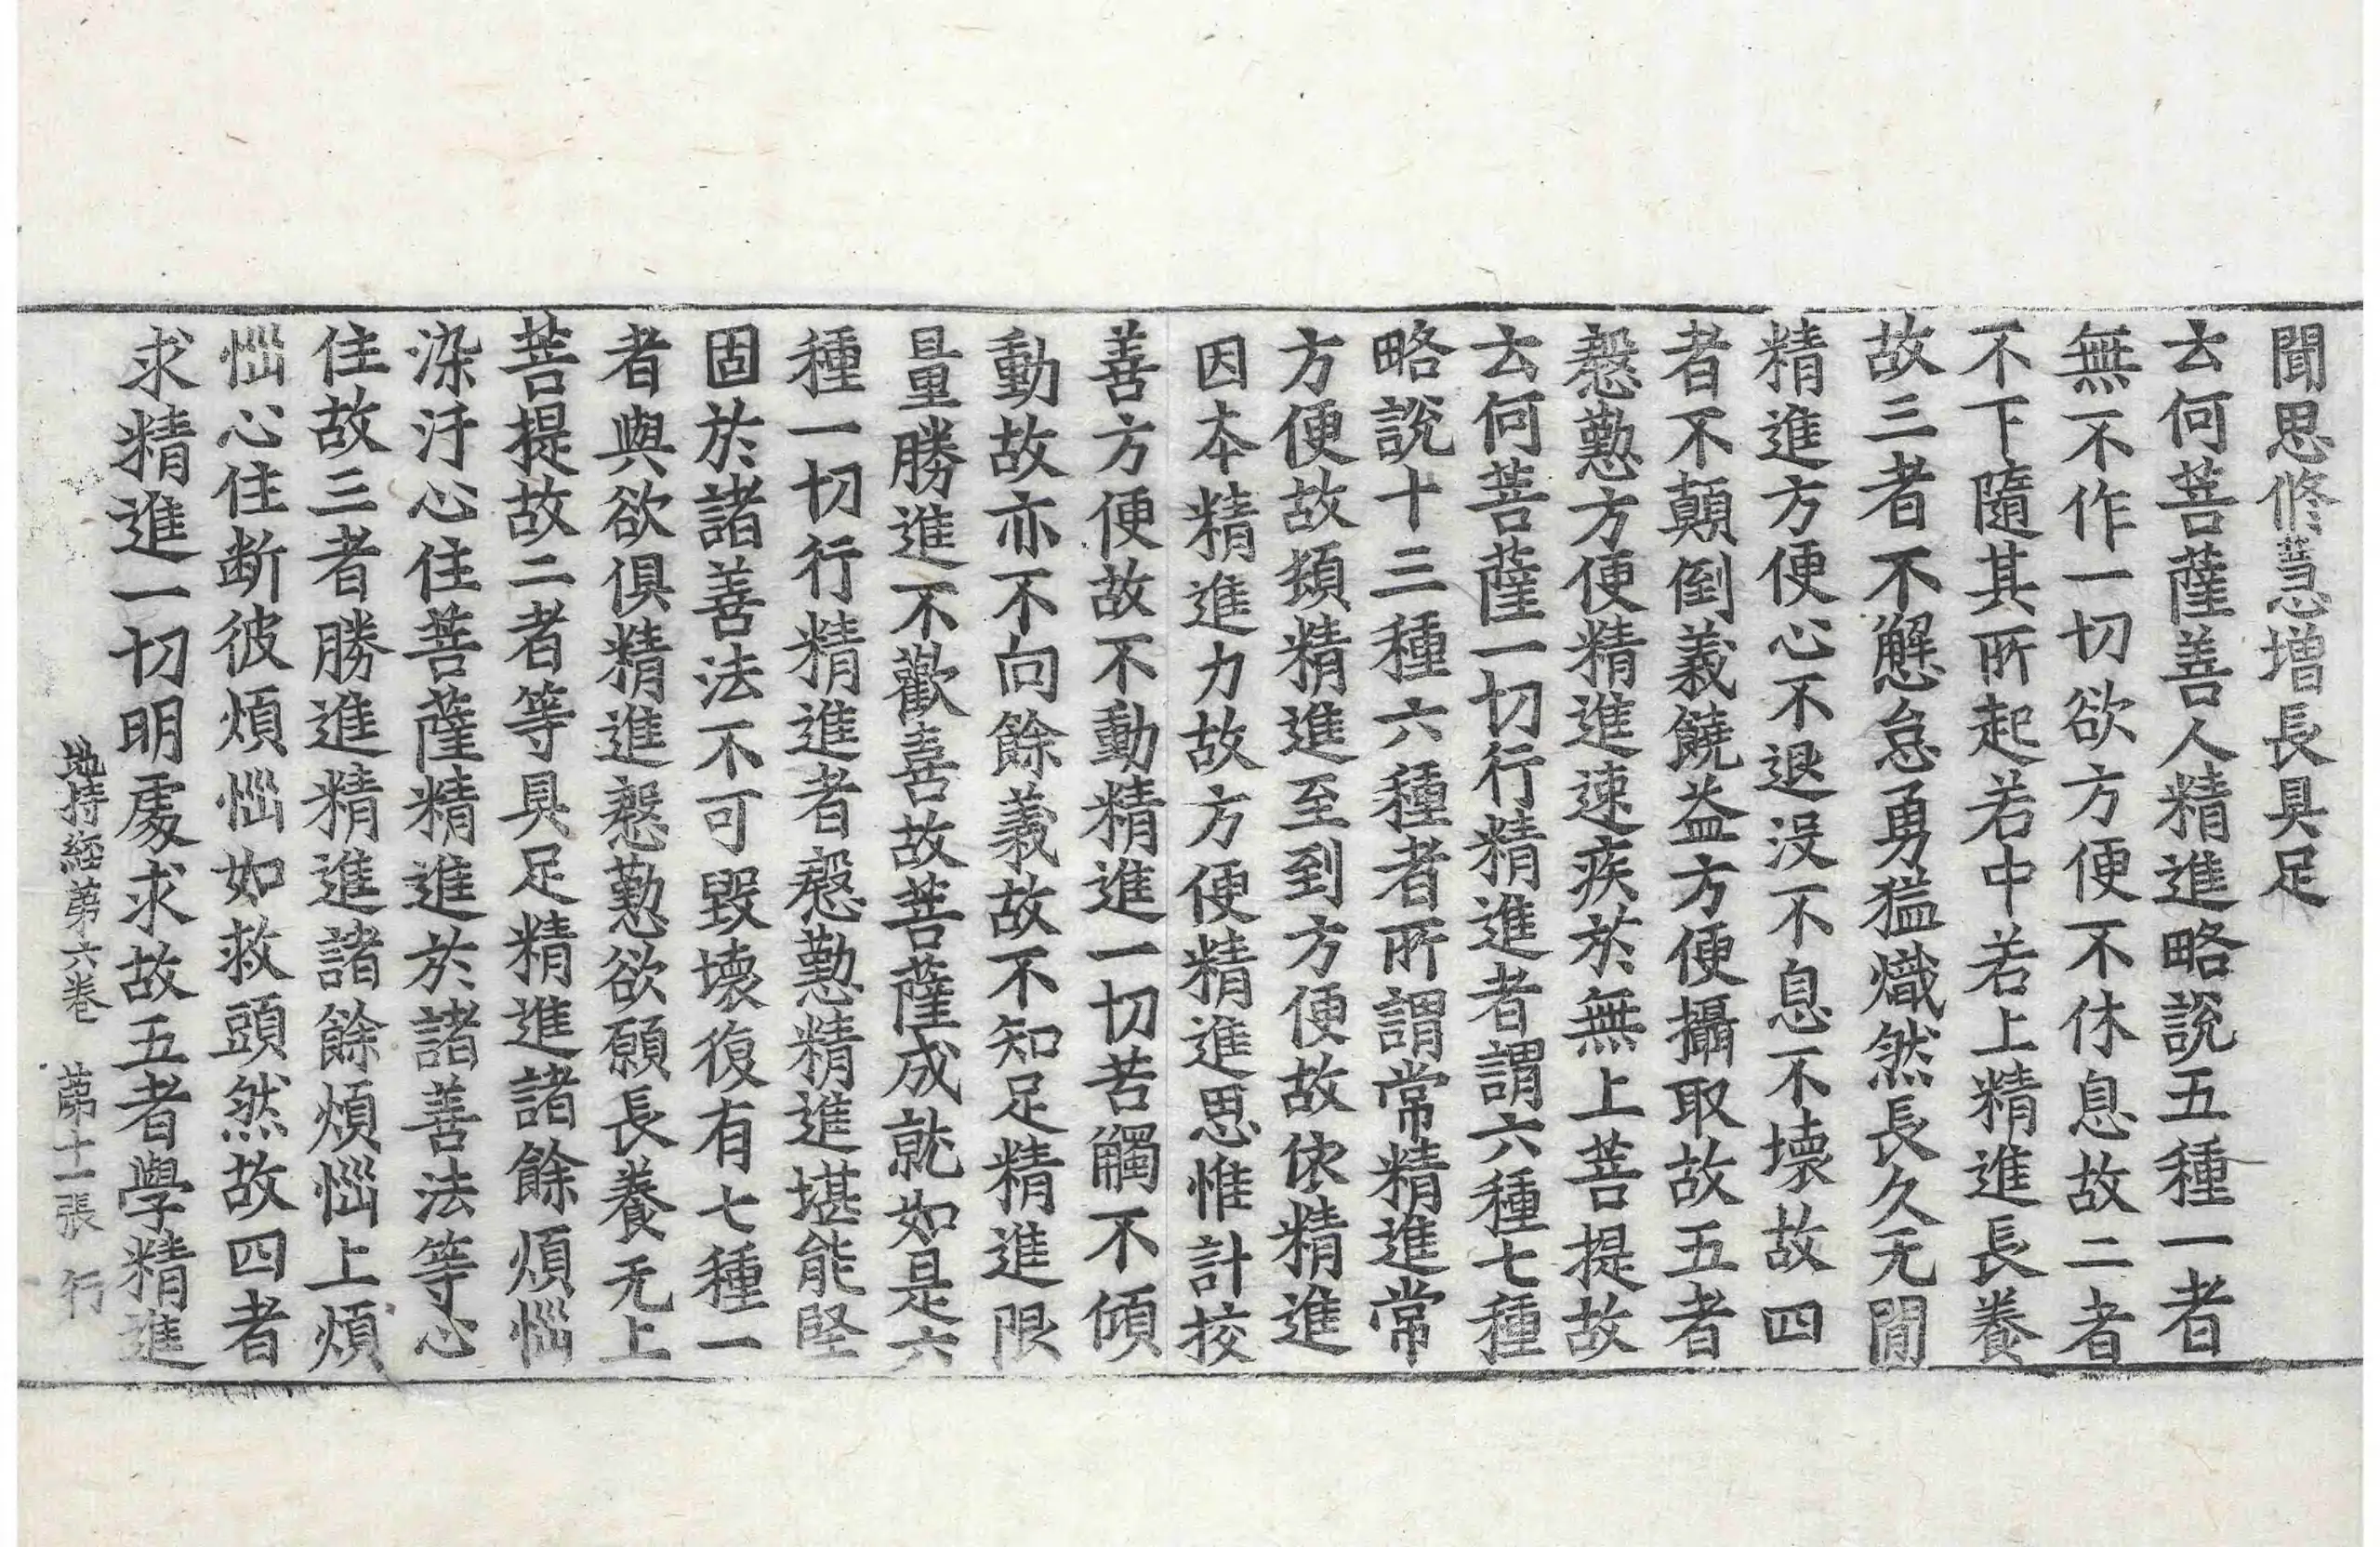 聞思修慧增長具足
云何菩薩善人精進略說五種一者
無不作一切欲方便不休息故二者
不下隨其所起若中若上精進長養
故三者不懈怠勇猛熾然長久无閒
精進方便心不退没不息不壞故四
者不顛倒義饒益方便攝取故五者
慇懃方便精進速疾於無上菩提故
云何菩薩一切行精進者謂六種七種
略說十三種六種者所謂常精進常
方便故頻精進至到方便故依精進
因本精進力故方便精進思惟計挍
善方便故不動精進一切苦觸不傾
動故亦不向餘義故不知足精進限
量勝進不歡喜故菩薩成就如是六
種一切行精進者慇懃精進堪能堅
固於諸善法不可毀壞復有七種一
者與欲俱精進慇懃欲願長養无上
菩提故二者等具足精進諸餘煩惱
染汙心住菩薩精進於諸善法等心
住故三者勝進精進諸餘煩惱上煩
惱心住断彼煩惱如救頭然故四者
求精進一切明處求故五者學精進
地持經第六卷 第十一張 行